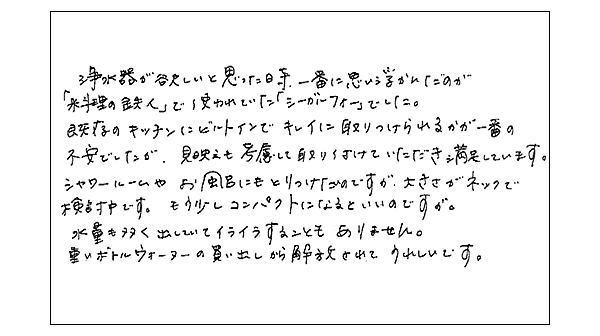 浄水器が欲しいと思った時、一番に思い浮かんだのが
「料理の鉄人」で使われていた「シーガルフォー」でした。
既存のキッチンにビルトインでキレイに取りつけられるかが一番の
不安でしたが、見映えも考慮して取り付けていただき満足しています。
シャワールームや お風呂にもとりつけたいのですが、大きさがネックで
検討中です。もう少しコンパクトになるといいのですが。
水量も多く出ていてイライラすることもありません。
重いボトルウォーターの買い出しから解放されてうれしいです。